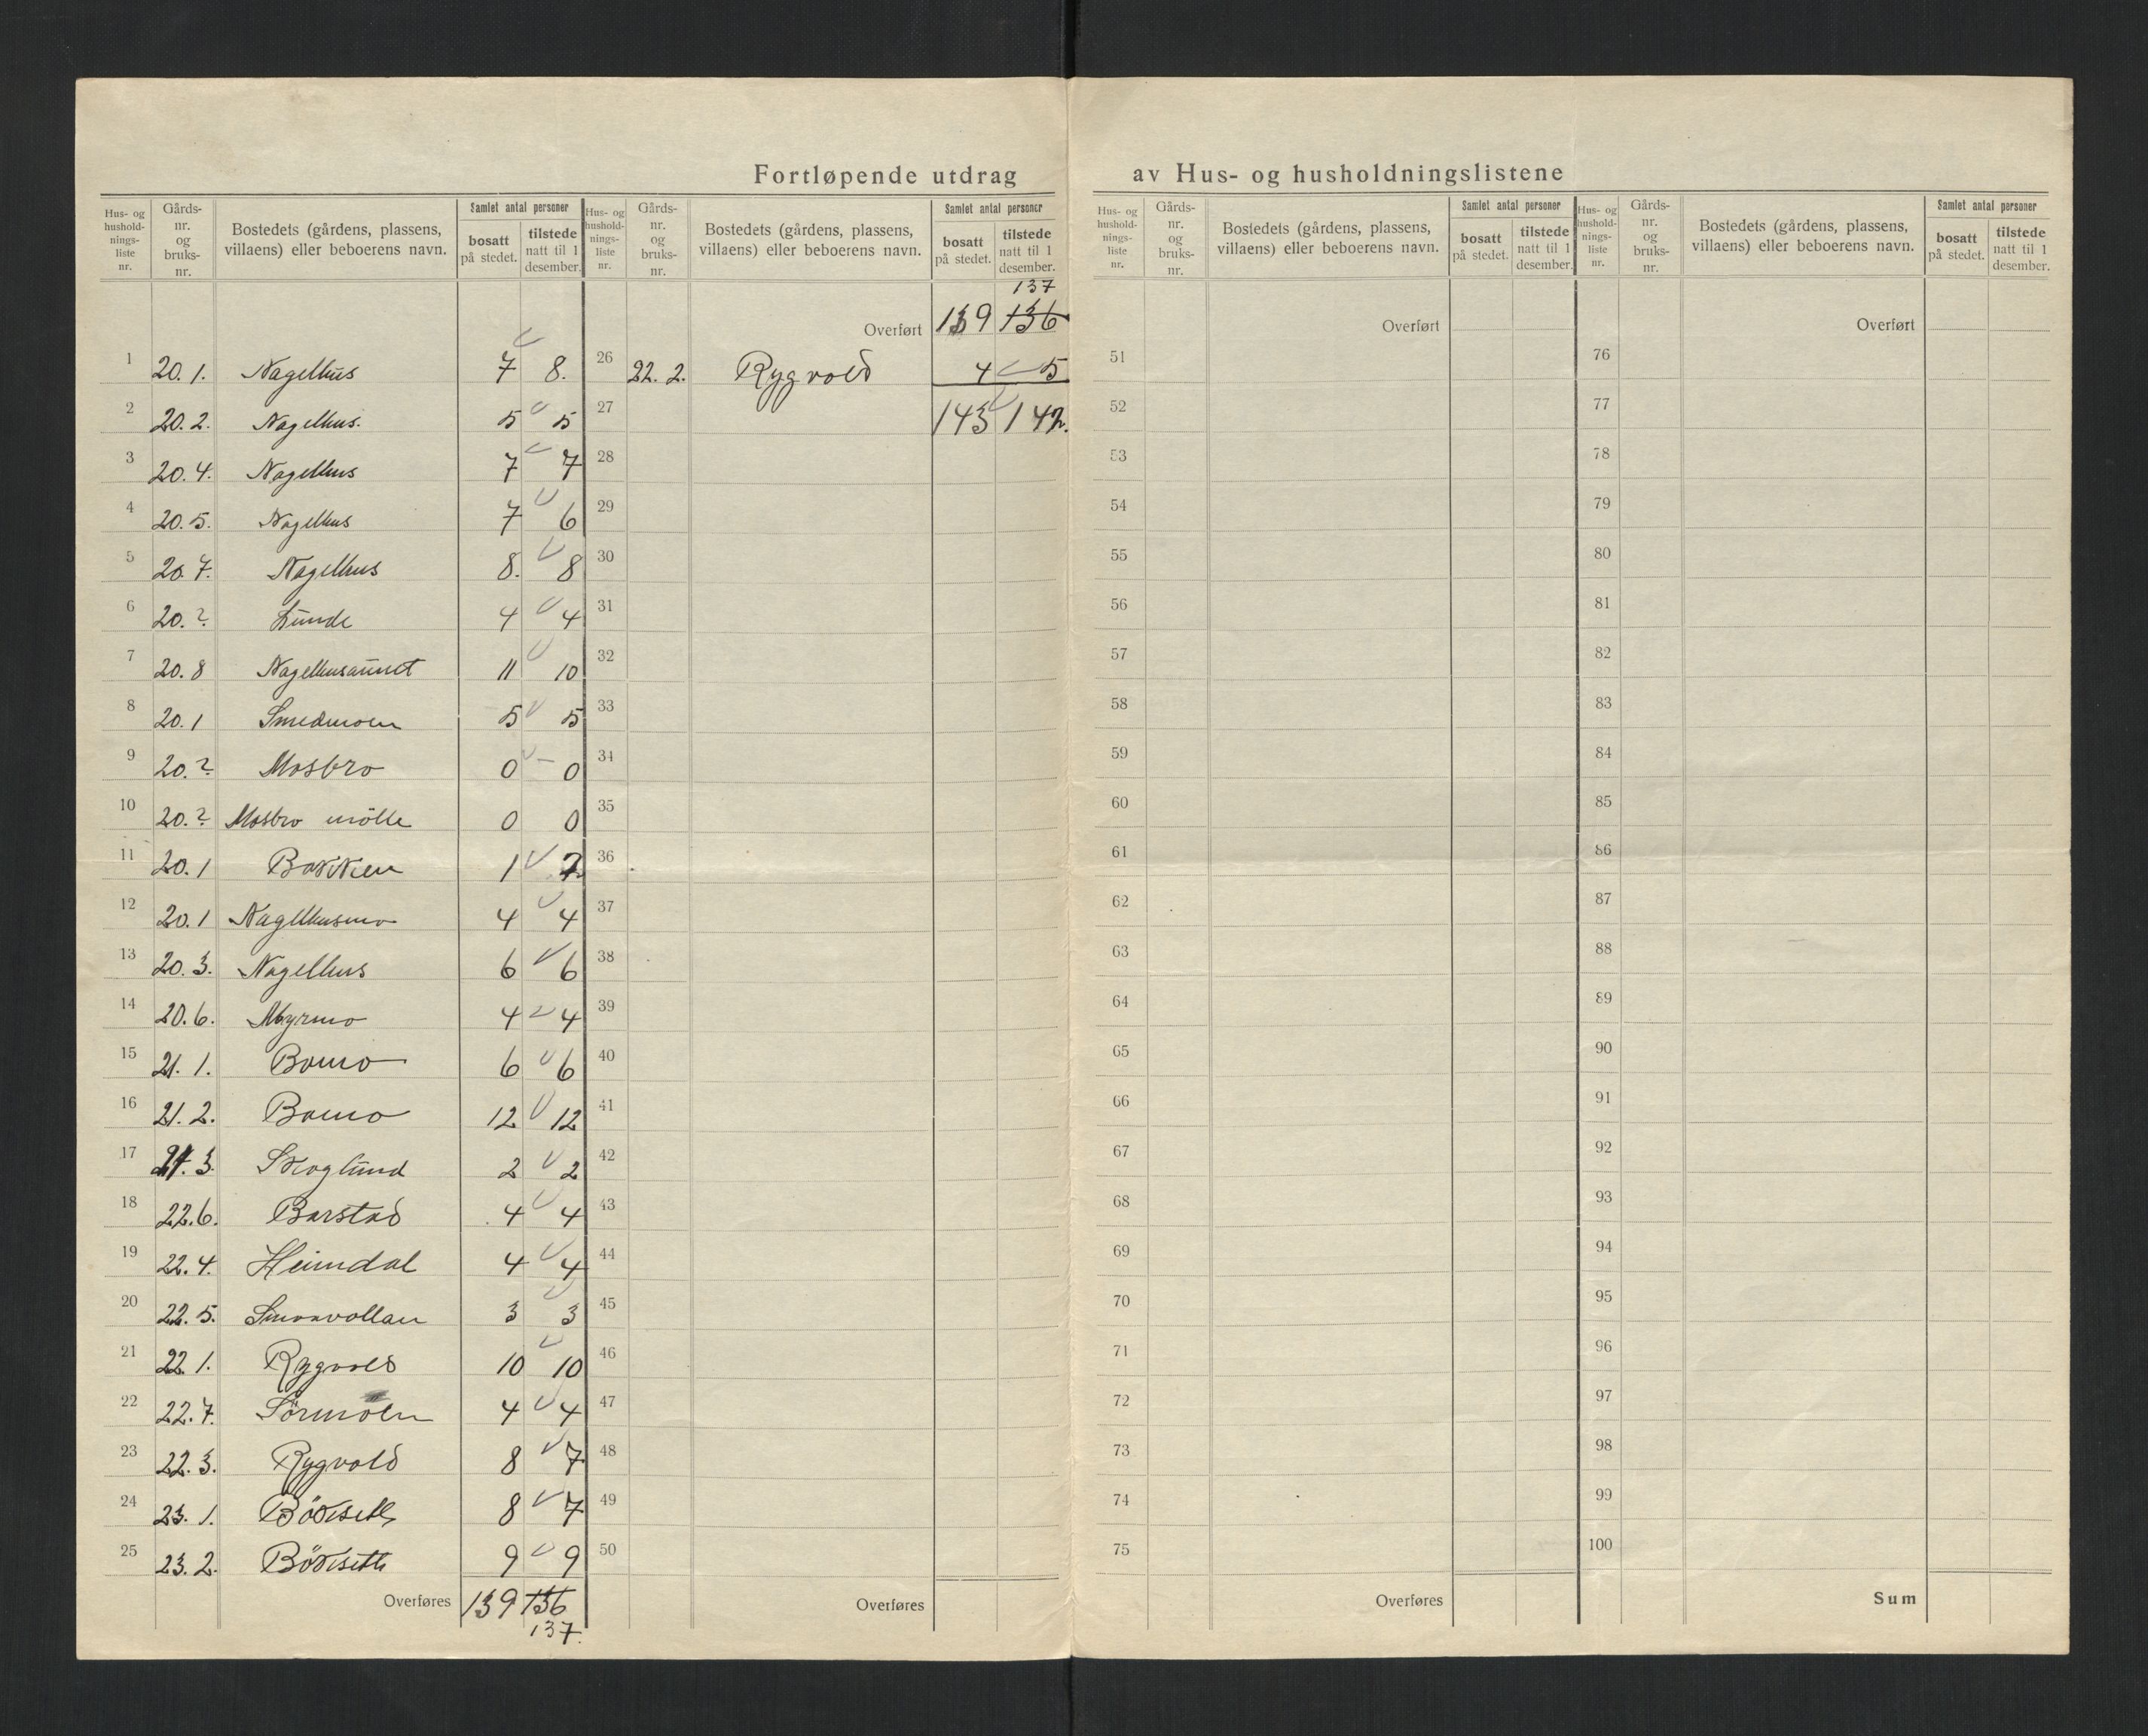 Fortløpende utdrag av Hus- og husholdningslistene
Hus- og hushold-nings-liste nr. Gårds-nr. og bruks-nr. Bostedets (gårdens, plassens, villaens) eller beboerens navn. Samlet antal personer bosatt på stedet. tilstede natt til 1 desember.
1 20. 1. Nagelhus 7 8.
2 20. 2. Nagelhus. 5 5
3 20. 4. Nagelhus 7 7
4 20. 5. Nagelhus 7 6
5 20. 7. Nagelhus 8. 8
6 20. ? Lunde 4 4
7 20. 8 Nagelhusaunet 11 10
8 20. 1 Smedmoen 5 5
9 20. ? Mosbro 0 — 0
10 20. ? Mosbro mölle 0 0
11 20. 1 Bakken 1 2
12 20. 1 Nagelhusmo 4 4
13 20. 3. Nagelhus 6 6
14 20. 6. Myrmo 4 4
15 21. 1. Bomo 6 6
16 21. 2. Bomo 12 12
17 21. 3. Skoglund 2 2
18 22. 6. Barstad 4 4
19 22. 4. Heimdal 4 4
20 22. 5. Smovollan 3 3
21 22. 1. Rygvold 10 10
22 22. 7. Sörmoen 4 4
23 22. 3. Rygvold 8 7
24 23. 1. Bökseth 8 7
25 23. 2. Bökseth 9 9
Overføres 139 136
137.
Hus- og hushold-nings-liste nr. Gårds-nr. og bruks-nr. Bostedets (gårdens, plassens, villaens) eller beboerens navn. Samlet antal personer bosatt på stedet. tilstede natt til 1 desember.
137
Overført 139 136
26 22. 2. Rygvold 4 5
27 143 142.
28
29
30
31
32
33
34
35
36
37
38
39
40
41
42
43
44
45
46
47
48
49
50
Overføres
Hus- og hushold-nings-liste nr. Gårds-nr. og bruks-nr. Bostedets (gårdens, plassens, villaens) eller beboerens navn. Samlet antal personer bosatt på stedet. tilstede natt til 1 desember.
Overført
51
52
53
54
55
56
57
58
59
60
61
62
63
64
65
66
67
68
69
70
71
72
73
74
75
Overføres
Hus- og hushold-nings-liste nr. Gårds-nr. og bruks-nr. Bostedets (gårdens, plassens, villaens) eller beboerens navn. Samlet antal personer bosatt på stedet. tilstede natt til 1 desember.
Overført
76
77
78
79
80
81
82
83
84
85
86
87
88
89
90
91
92
93
94
95
96
97
98
99
100
Sum